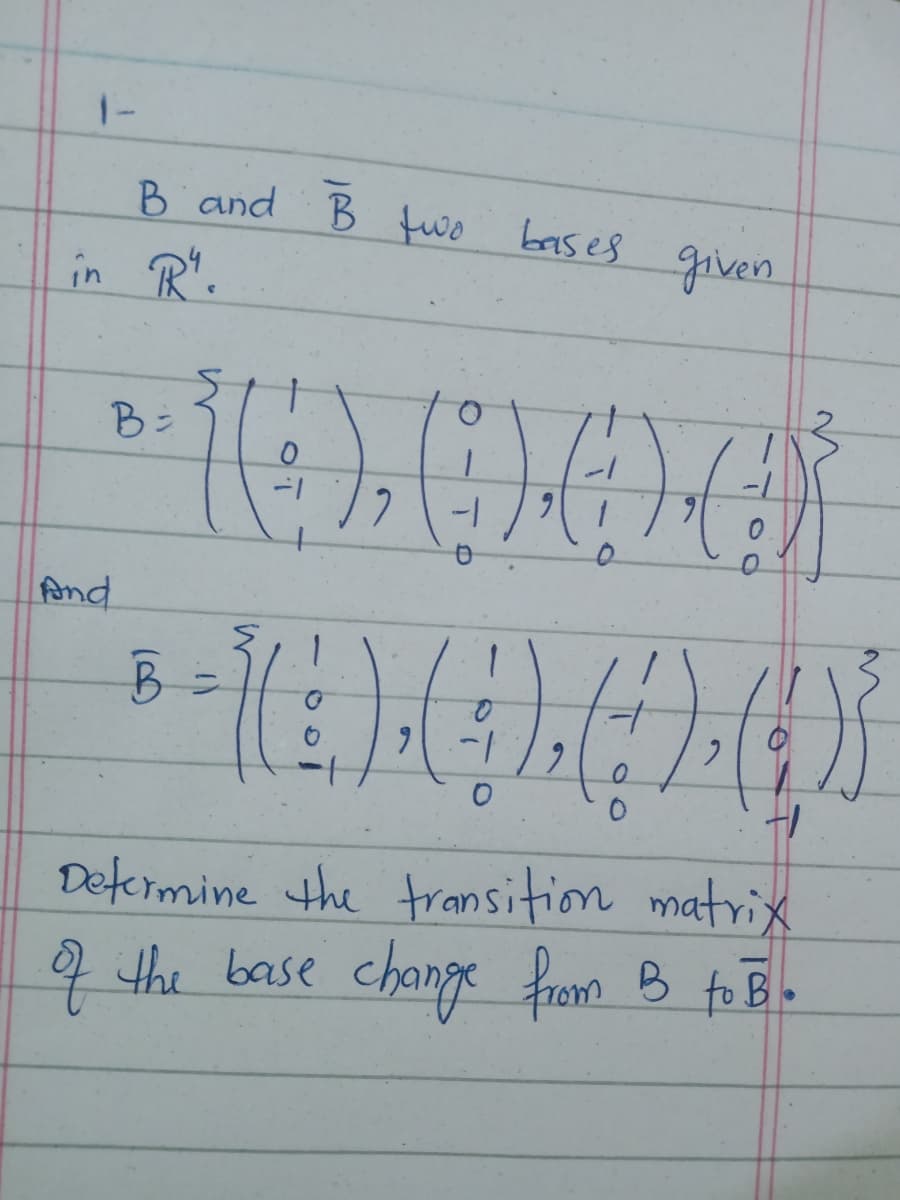 1-
B and B̅ two bases given
in ℝ⁴.
B = {(1 0 -1 1), (0 1 -1 0), (1 -1 1 0), (1 -1 0 0)}
And
B̅ = {(1 0 0 -1), (1 0 -1 0), (1 -1 0 0), (1 0 1 -1)}
Determine the transition matrix
of the base change from B to B̅.